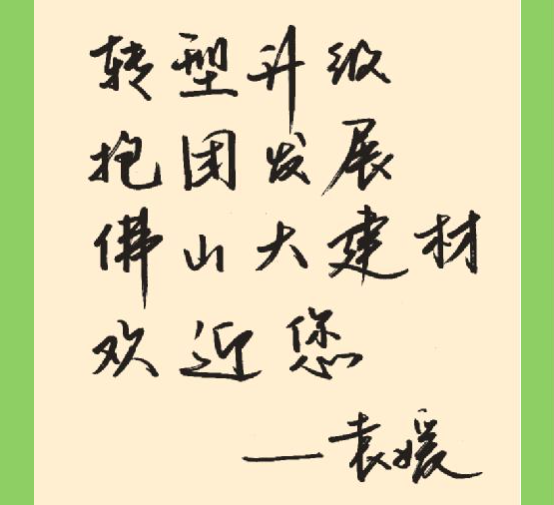 转型升级
抱团发展
佛山大建材
欢近您
—袁媛